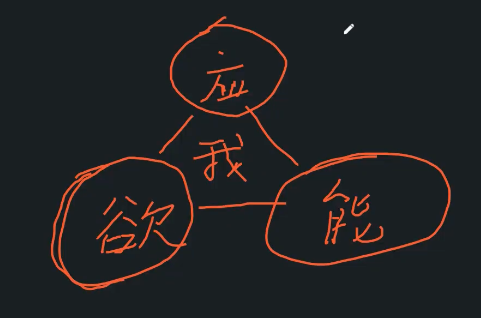 应
我
欲 能